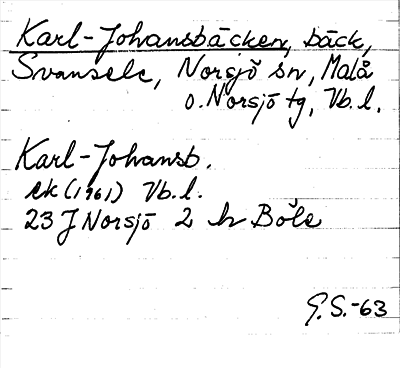 Karl-Johansbäcken, bäck,
Svansele, Norsjö sn, Malå
o. Norsjö tg, Vb.l.
Karl-Johansb.
ek (1961) Vb.l.
23 J Norsjö 2 h Böle
G.S.-63